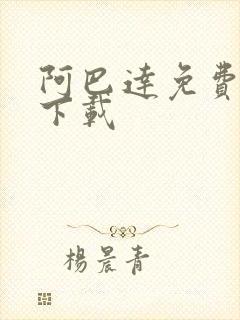 阿巴達免費
下載
楊晨青